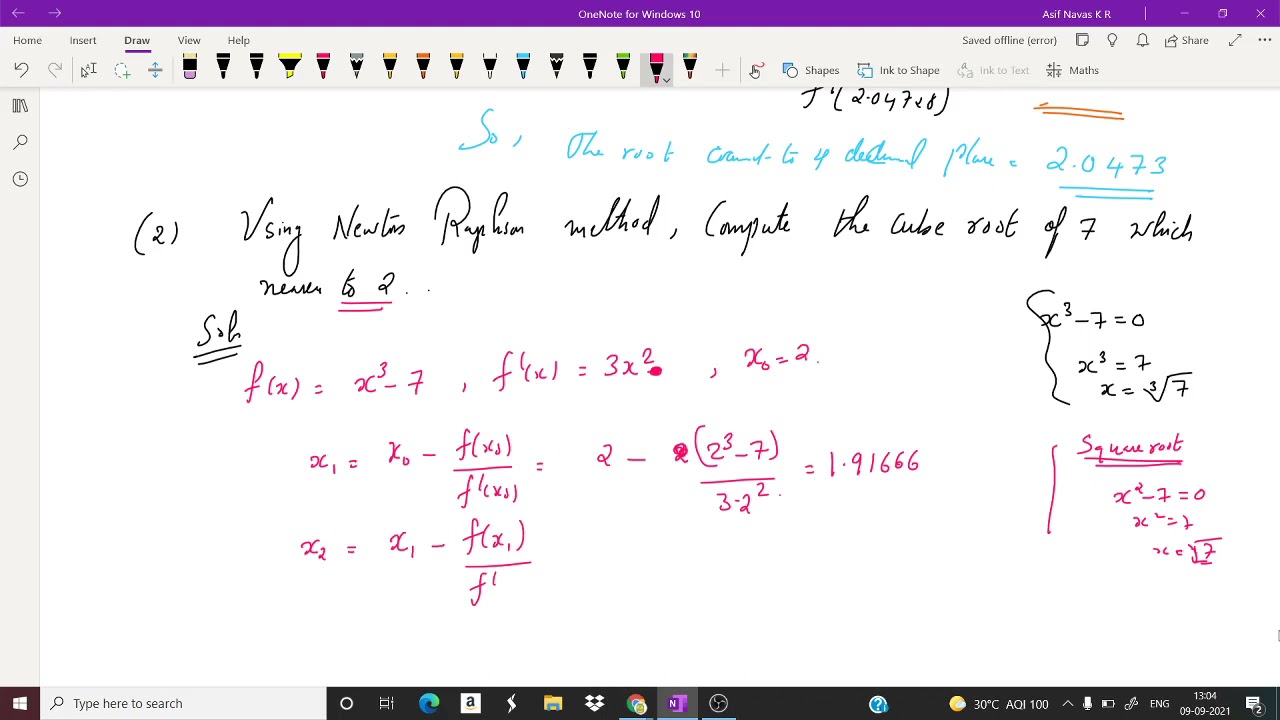 OneNote for Windows 10
Asif Navas K R
Home Insert Draw View Help
Saved offline (error)
Share
Shapes
Ink to Shape
Ink to Text
Maths
f'(2.04728)
So, The root to 4 decimal place = 2.0473
(2) Using Newton Raphson method, Compute the cube root of 7 which
nearer to 2 . .
Soln
x³ - 7 = 0
x³ = 7
x = ³√7
f(x) = x³ - 7 , f'(x) = 3x² , x₀ = 2.
x₁ = x₀ - f(x₀)/f'(x₀) = 2 - (2³ - 7)/3·2² = 1.91666
Square root
x² - 7 = 0
x² = 7
x = √7
x₂ = x₁ - f(x₁)/f'
Type here to search
30°C AQI 100
ENG
13:04
09-09-2021
2